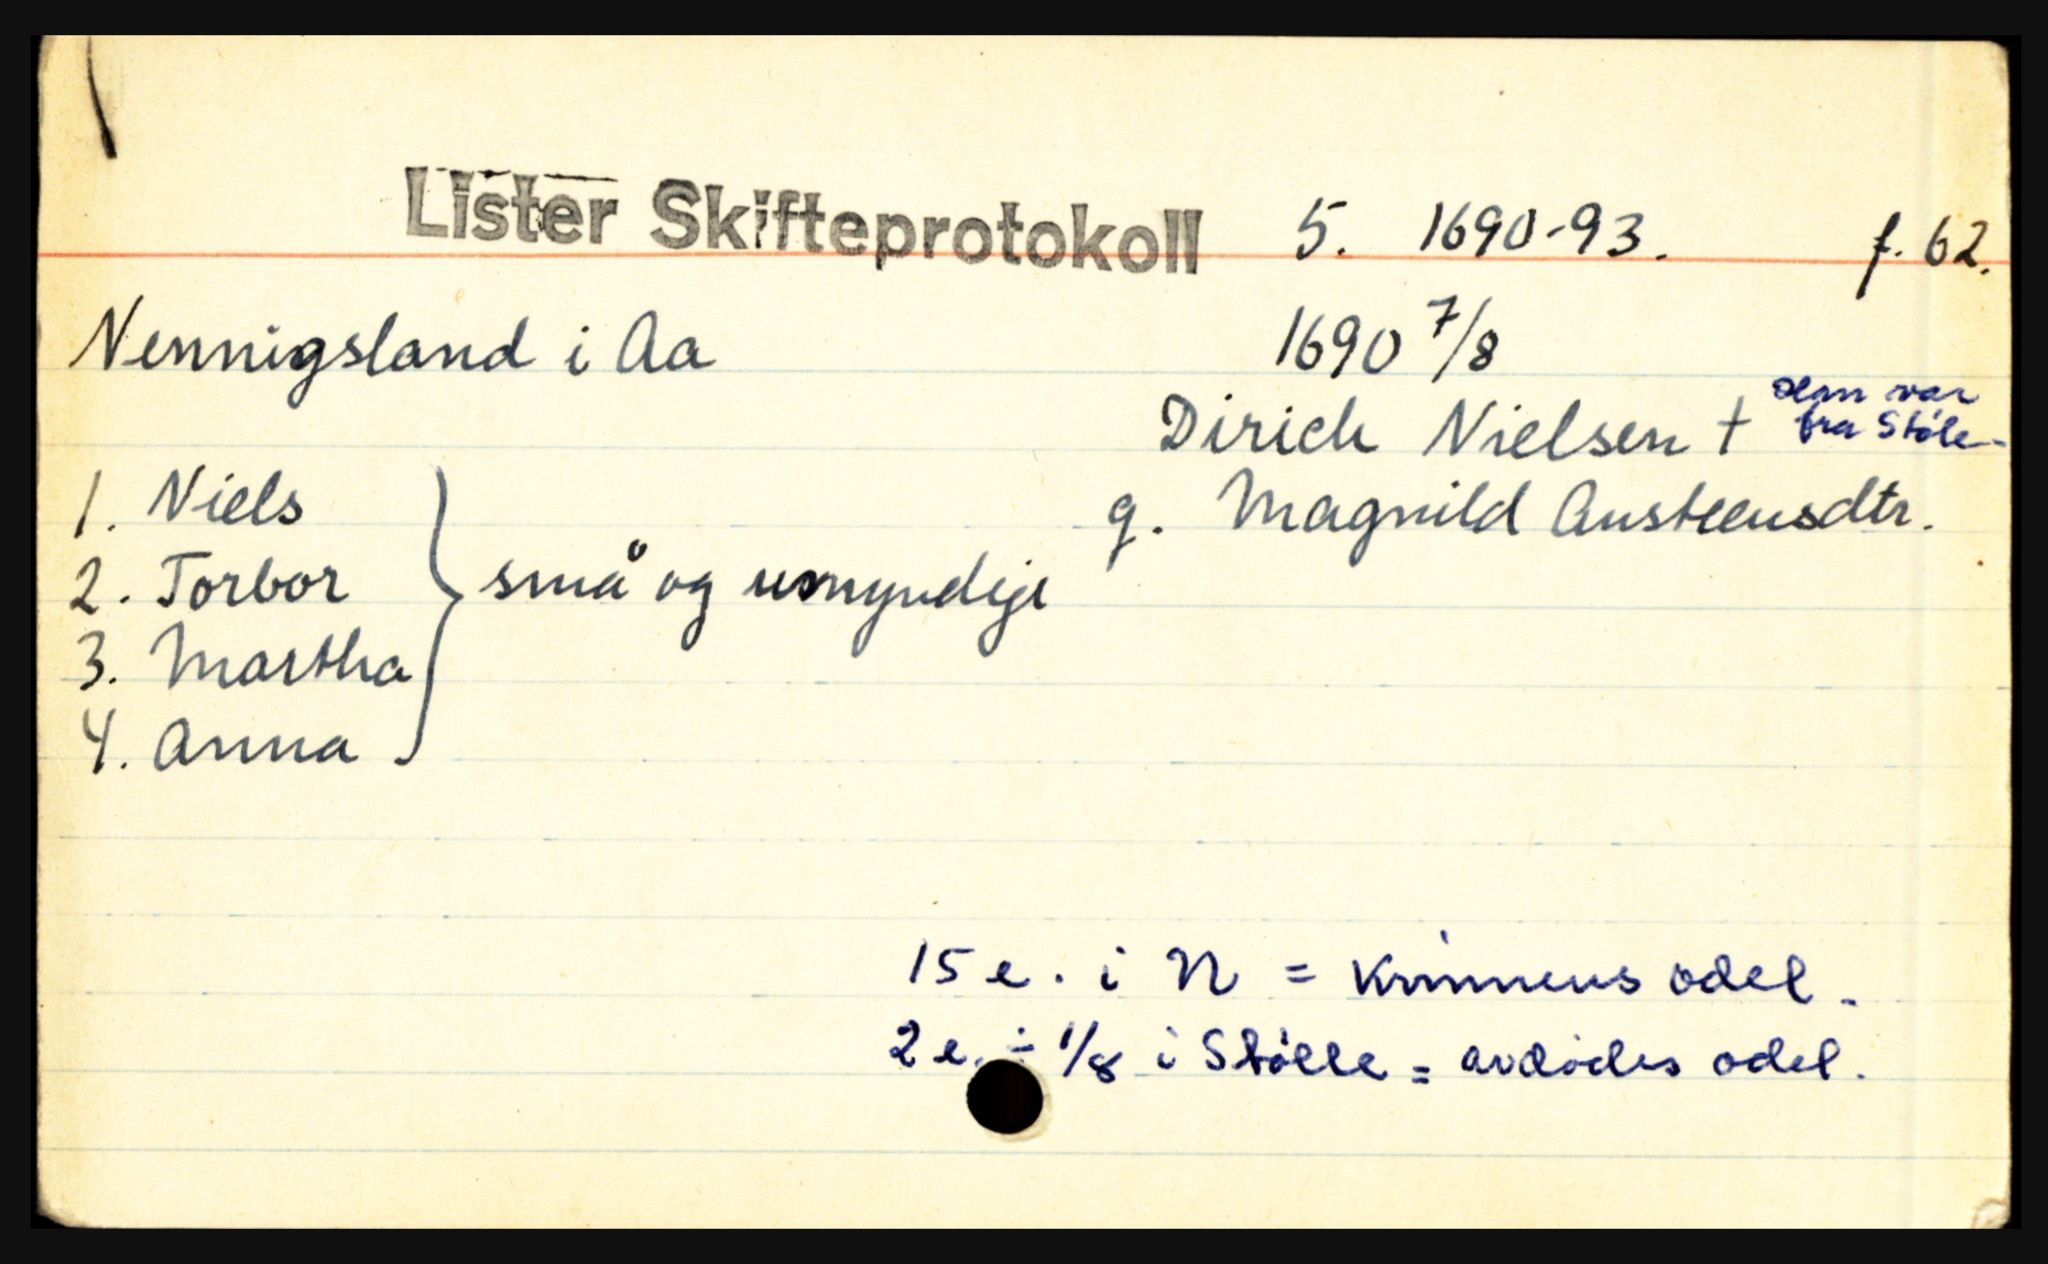 Lister Skifteprotokoll 5. 1690-93. f. 62.
Nennigsland i Aa 1690 7/8
Dirich Nielsen † som var
fra Støle
g. Magnild Austeensdtr.
1. Niels
2. Torbor } små og umyndige
3. Martha
4. Anna
15 e. i N = kvinnens odel.
2 e. ÷ 1/8 i Stølle = avdødes odel.